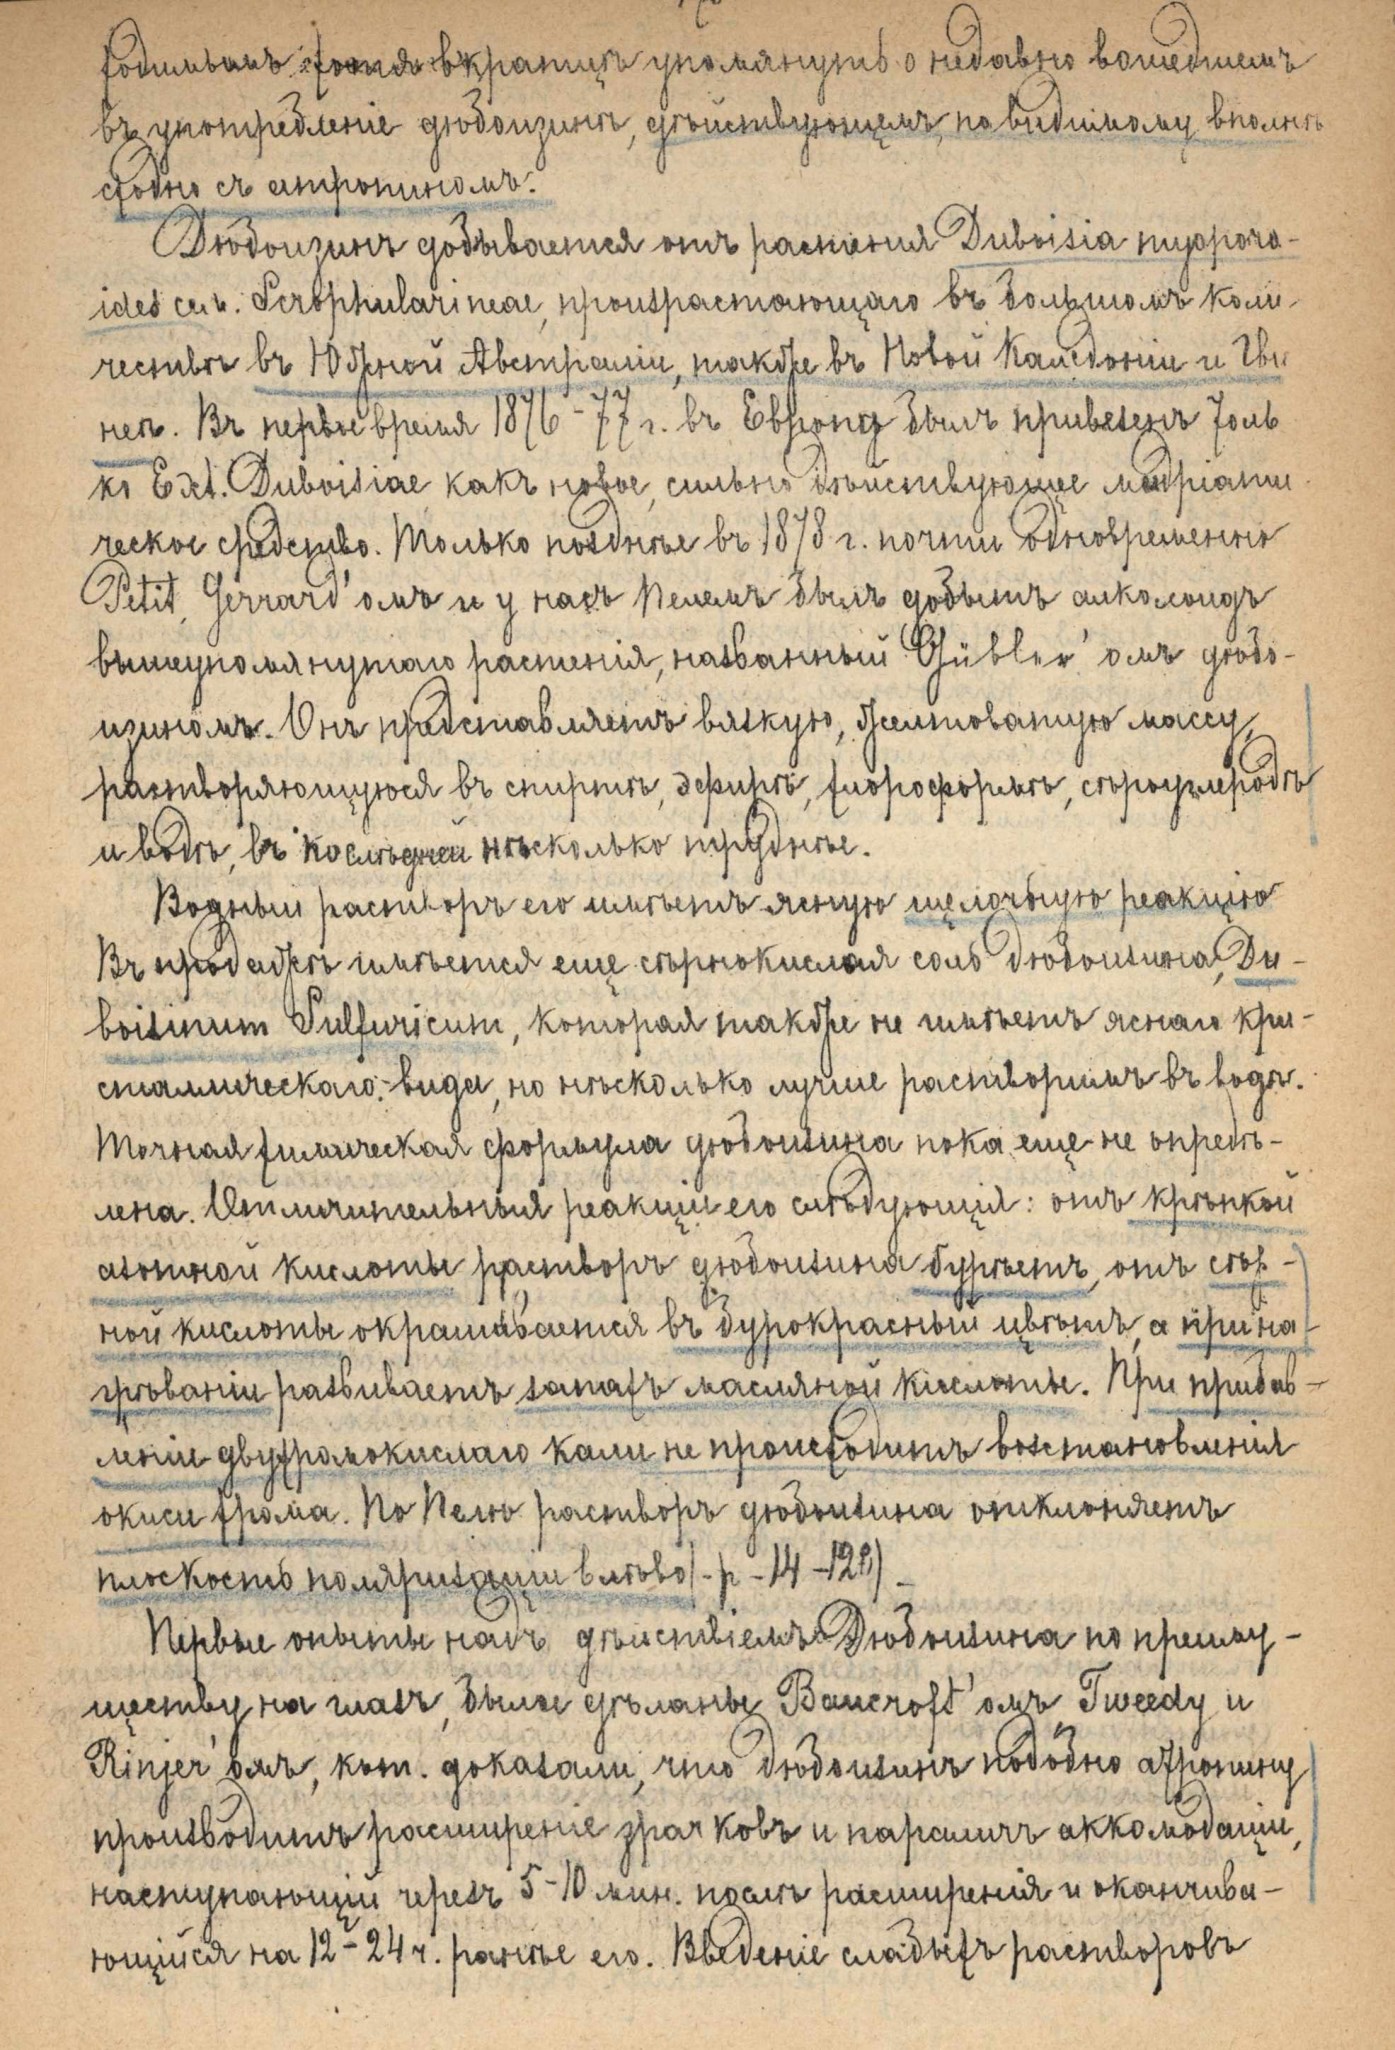 ходимымъ хотя вкратцѣ упомянуть о недавно вошедшемъ
въ употребленіе дюбоизинѣ, дѣйствующемъ, повидимому вполнѣ
сходно съ атропиномъ.
Дюбоизинъ добывается отъ растенія Duboisia myoporo-
ides сем. Scrophularineae, произрастающаго въ большомъ коли-
чествѣ въ Южной Австраліи, также въ Новой Каледоніи и Гви
неѣ. Въ первое время 1876-77 г. въ Европу былъ привезенъ толь
ко Ext. Duboisiae какъ новое, сильно дѣйствующее мидріати-
ческое средство. Только позднѣе въ 1878 г. почти одновременно
Petit, Gerrard'омъ и у насъ Пелемъ былъ добытъ алколоидъ
вышеупомянутаго растенія, названный Gübler'омъ дюбо-
изиномъ. Онъ представляетъ вязкую, желтоватую массу,
растворяющуюся въ спиртѣ, эфирѣ, хлороформѣ, сѣроуглеродѣ
и водѣ, въ послѣдней нѣсколько труднѣе.
Водный растворъ его имѣетъ ясную щелочную реакцію
Въ продажѣ имѣется еще сѣрнокислая соль дюбоизина, Du-
boisinum Sulfuricum, которая также не имѣетъ яснаго кри-
сталлическаго вида, но нѣсколько лучше растворимъ въ водѣ.
Точная химическая формула дюбоизина пока еще не опредѣ-
лена. Отличительныя реакціи его слѣдующія: отъ крѣпкой
азотной кислоты растворъ дюбоизина бурѣетъ, отъ сѣр-
ной кислоты окрашивается въ бурокрасный цвѣтъ, а при на-
грѣваніи развиваетъ запахъ масляной кислоты. При прибав-
леніи двухромокислаго кали не происходитъ возстановленія
окиси хрома. По Пелю растворъ дюбоизина отклоняетъ
плоскость поляризаціи влѣво
Первые опыты надъ дѣйствіемъ Дюбоизина по преиму-
ществу на глазъ, были сдѣланы Bancroft'омъ Tweedy и
Rinjer'омъ, кот. доказали, что дюбоизинъ подобно атропину
производитъ расширеніе зрачковъ и параличъ аккомодаціи,
наступающій черезъ 5-10 мин. послѣ расширенія и оканчива-
ющійся на 12-24 ч. ранѣе его. Введеніе слабыхъ растворовъ